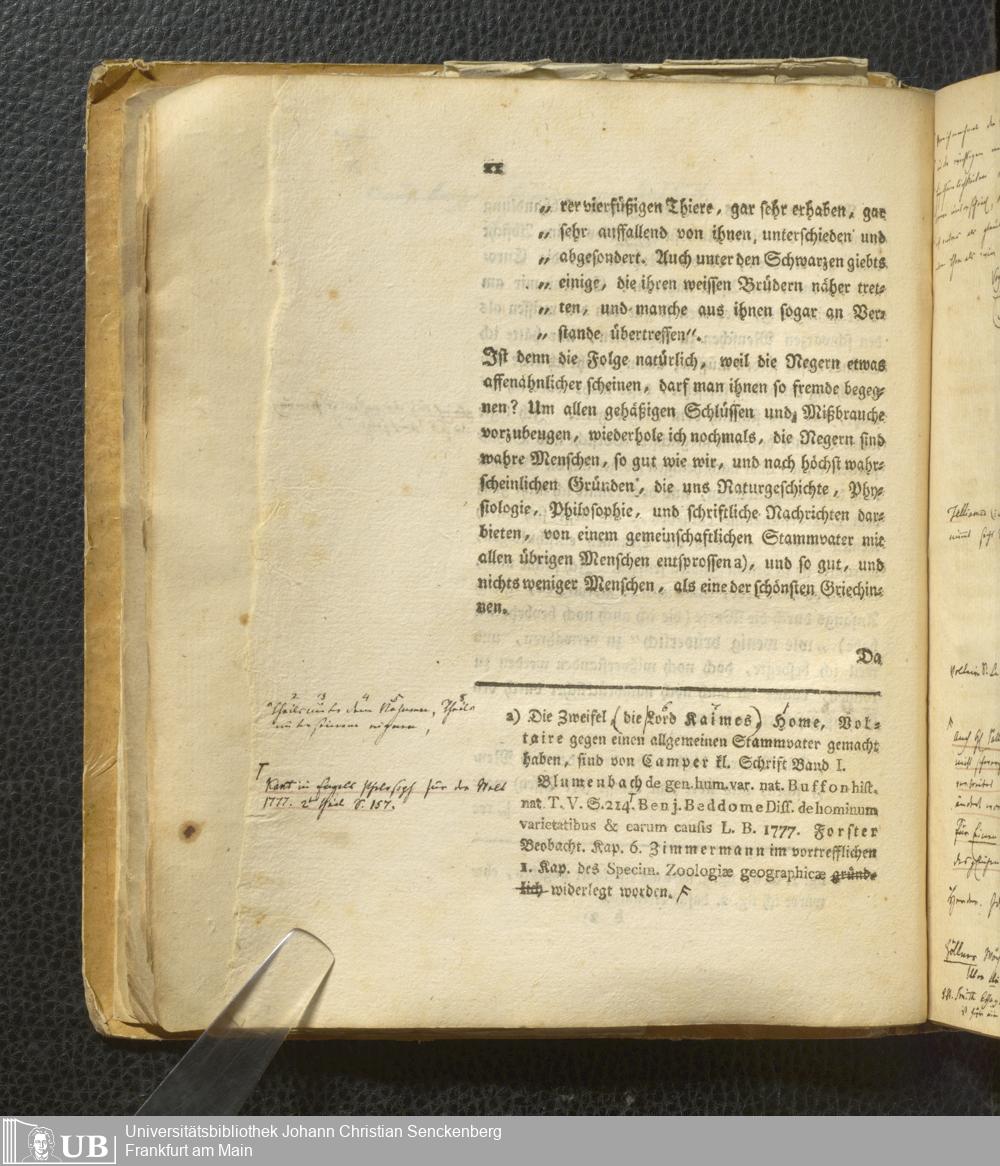 „ rer vierfüßigen Thiere, gar sehr erhaben, gar
„ sehr auffallend von ihnen, unterschieden und
„ abgesondert. Auch unter den Schwarzen giebts
„ einige, die ihren weissen Brüdern näher tret-
„ ten, und manche aus ihnen sogar an Ver-
„ stande übertreffen“.
Ist denn die Folge natürlich, weil die Negern etwas
affenähnlicher scheinen, darf man ihnen so fremde begeg-
nen? Um allen gehäßigen Schlüssen und, Mißbrauche
vorzubeugen, wiederhole ich nochmals, die Negern sind
wahre Menschen, so gut wie wir, und nach höchst wahr-
scheinlichen Gründen, die uns Naturgeschichte, Phy-
siologie, Philosophie, und schriftliche Nachrichten dar-
bieten, von einem gemeinschaftlichen Stammvater mit
allen übrigen Menschen entsprossen a), und so gut, und
nichts weniger Menschen, als eine der schönsten Griechin-
nen.
Da
a) Die Zweifel (die Lord Kaimes) Home, Vol-
taire gegen einen allgemeinen Stammvater gemacht
haben, sind von Camper kl. Schrift Band I.
Blumenbach de gen. hum. var. nat. Buffon hist.
nat. T. V. S. 214. Benj. Beddome Diss. de hominum
varietatibus & earum causis L. B. 1777. Forster
Beobacht. Kap. 6. Zimmermann im vortrefflichen
1. Kap. des Specim. Zoologiæ geographicæ gründ-
lich widerlegt worden.
Theils unter dem Nahmen, Theils
Kant in Engels Philosoph für die Welt
1777. 2 Theil S. 157.
UB
Universitätsbibliothek Johann Christian Senckenberg
Frankfurt am Main